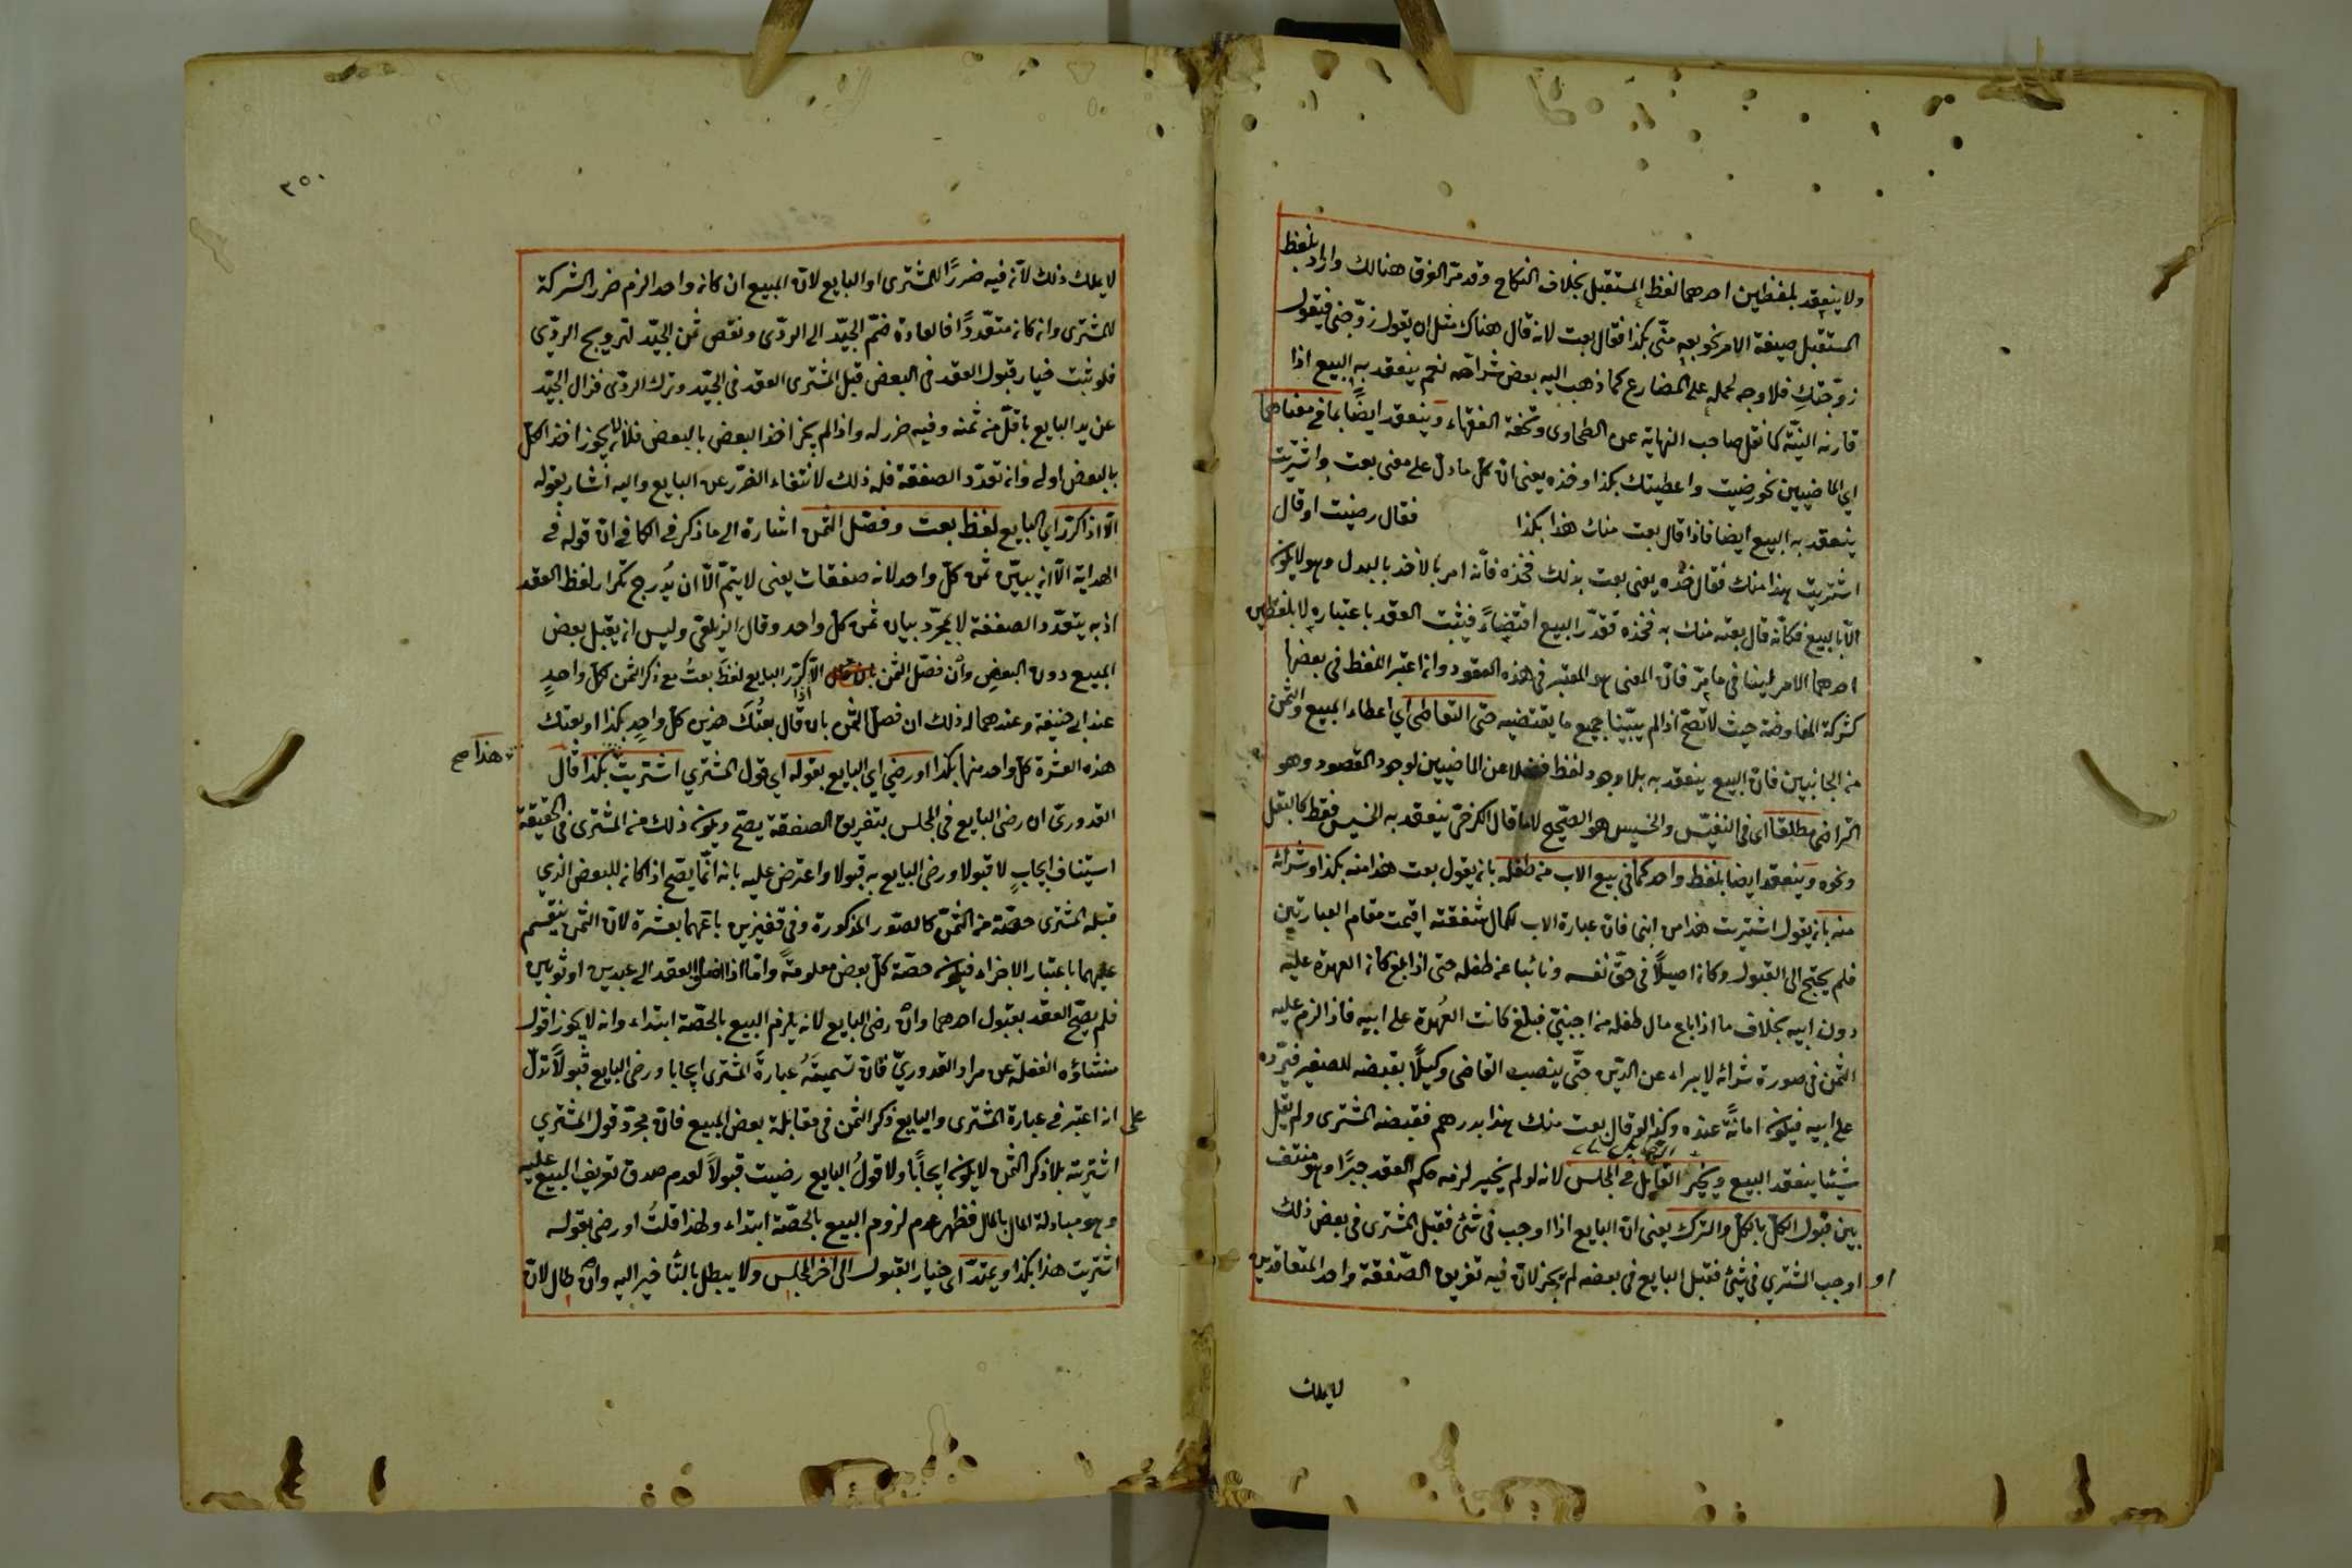 ولا ينعقد بلفظين احدهما لفظ المستقبل بخلاف النكاح وقد مر الفرق هنالك واراد بلفظ
المستقبل صيغة الامر نحو بعه منّي بكذا فقال بعت لانه قال هناك مثل ان يقول زوّجنى فيقول
زوّجتكِ فلا وجه لحمله على المضارع كما ذهب اليه بعض شراحه نعم ينعقد به البيع اذا
قارنه النيّة كما نقل صاحب النهاية عن الطحاوى وتحفة الفقهاء وينعقد ايضًا بما في معناهما
اي الماضيين نحو رضيت واعطيتك بكذا وخذه يعنى انّ كل ما دل على معنى بعت واشتريت
ينعقد به البيع ايضا فاذا قال بعت منك هذا بكذا فقال رضيت او قال
اشتريت هذا منك فقال خذه يعنى بعت بذلك فخذه فانّه امر بالاخذ بالبدل وهو لا يكون
الّا بالبيع فكانّه قال بعته منك به فخذه فقدّر البيع اقتضاءً فيثبت العقد باعتباره لا بلفظين
احدهما الامر لينافى ما مرّ فانّ المعنى هو المعتبر فى هذه العقود وانما اعتبر اللفظ فى بعضها
كشركة المفاوضة حيث لا تصحّ اذا لم يبيّنا جميع ما يقتضيه حتى التعاطى اي اعطاء المبيع والثمن
من الجانبين فانّ البيع ينعقد به بلا وجود لفظ فضلا عن الماضيين لوجود المقصود وهو
التراضى مطلقا اى فى النفيس والخسيس هو الصحيح لا ما قال الكرخىّ ينعقد به الخسيس فقط كالبقل
ونحوه وينعقد ايضا بلفظ واحد كما فى بيع الاب من طفله بان يقول بعت هذا منه بكذا او شرائه
منه بان يقول اشتريت هذا من ابنى فانّ عبارة الاب لكمال شفقته اقيمت مقام العبارتين
فلم يحتج الى القبول وكان اصيلًا فى حقّ نفسه ونائبا عن طفله حتى اذا بلغ كانت العهدة عليه
دون ابيه بخلاف ما اذا باع مال طفله من اجنبيّ فبلغ كانت العُهدة على ابيه فاذا لزم عليه
الثمن فى صورة شرائه لا يبراء عن الدين حتّى ينصب القاضى وكيلًا بقبضه للصغير فيردّه
على ابيه فيكون امانةً عنده وكذا لو قال بعت منك هذا بدرهم فقبضه المشترى ولم يقل
شيئا ينعقد البيع ويخيّر القابل فى المجلس لانه لو لم يخير لزمه حكم العقد جبرًا وهو منتف
بين قبول الكل بالكل والترك يعنى انّ البايع اذا اوجب فى شئ فقبل المشترى فى بعض ذلك
او اوجب المشتري فى شئ فقبل البايع فى بعضه لم يجز لانّ فيه تفريق الصّفقة واحد المتعاقدين
لا يملك
٢٥٠
لا يملك ذلك لانّه فيه ضررًا للمشترى او البايع لانّ المبيع ان كان واحدا لزم ضرر الشركة
للمشترى وان كان متعدّدًا فالعادة ضمّ الجيّد الى الردّى ونقص ثمن الجيّد لترويج الردّى
فلو ثبت خيار قبول العقد فى البعض قبل المشترى العقد فى الجيّد وترك الردّى فزال الجيّد
عن يد البايع باقلّ من ثمنه وفيه ضرر له واذا لم يجز اخذ البعض بالبعض فلان لا يجوز اخذ الكلّ
بالبعض اولى وان تعدّد الصفقة فله ذلك لانتفاء الضّرر عن البايع واليه اشار بقوله
الّا اذا كرّر اي البايع لفظ بعت وفصّل الثمن اشارة الى ما ذكر فى الكافى انّ قوله فى
الهداية الّا ان يبيّن ثمن كلّ واحد لانه صفقات يعنى لا يتمّ الّا ان يُدرج تكرار لفظ العقد
اذ به يتعدّد الصفقة لا بمجرّد بيان ثمن كلّ واحد وقال الزيلعى وليس ان يقبل بعض
المبيع دون البعضِ وان فصّل الثمن الّا اذا كرّر البايع لفظ بعتُ مع ذكر الثمن لكلّ واحدٍ
عند ابى حنيفة وعندهما له ذلك ان فصل الثمن بان قال بعتُك هذين كلّ واحدٍ بكذا او بعتك
هذه العشرة كلّ واحد منها بكذا او رضي اي البايع بقوله اي قول المشتري اشتريت بكذا قال
هذا صح
القدورىّ ان رضى البايع فى المجلس بتفريق الصفقة يصّح ويكون ذلك من المشترى فى الحقيقة
استيناف ايجابٍ لا قبولا ورضى البايع به قبولا واعترض عليه بانه انّما يصّح اذا كان للبعض الذي
قبله المشترى حصّة من الثمن كالصّور المذكورة وفى قفيزين باعهما بعشرة لانّ الثمن ينقسم
عليهما باعتبار الاجزاء فيكون حصّة كلّ بعض معلومةً وامّا اذا العقد الى عبدين او ثوبين
فلم يصّح العقد بقبول احدهما وان رضى البايع لانه يلزم البيع بالحصّة ابتداء وانه لا يجوز اقول
منشاؤه الغفلة عن مراد القدوريّ فانّ تسميتَهُ عبارةَ المشترى ايجابا ورضى البايع قبولًا تدلّ
على انه اعتبر فى عبارة المشترى والبايع ذكر الثمن فى مقابلة بعض المبيع فانّ مجرّد قول المشتري
اشتريته بلا ذكر الثمن لا يكون ايجابًا ولا قولُ البايع رضيت قبولًا لعدم صدق تعريف البيع عليه
وهو مبادلة المال بالمال فظهر عدم لزوم البيع بالحصّة ابتداء ولهذا قلتُ او رضى بقوله
اشتريت هذا بكذا ويمتدّ اى خيار القبول الى اخر المجلس ولا يبطل بالتأخير اليه وان طال لانّ